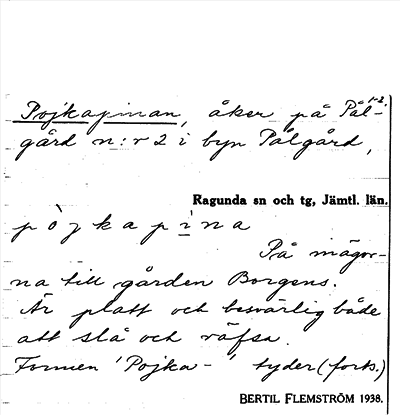 Pojkapinan, åker på Pål-
1-2.
gård n:r 2 i byn Pålgård,
Ragunda sn och tg, Jämtl. län.
p ò j k a p i n a
På mägor-
na till gården Borgens.
Är platt och besvärlig både
att slå och räfsa.
Formen 'Pojka-' tyder (forts.)
BERTIL FLEMSTRÖM 1938.